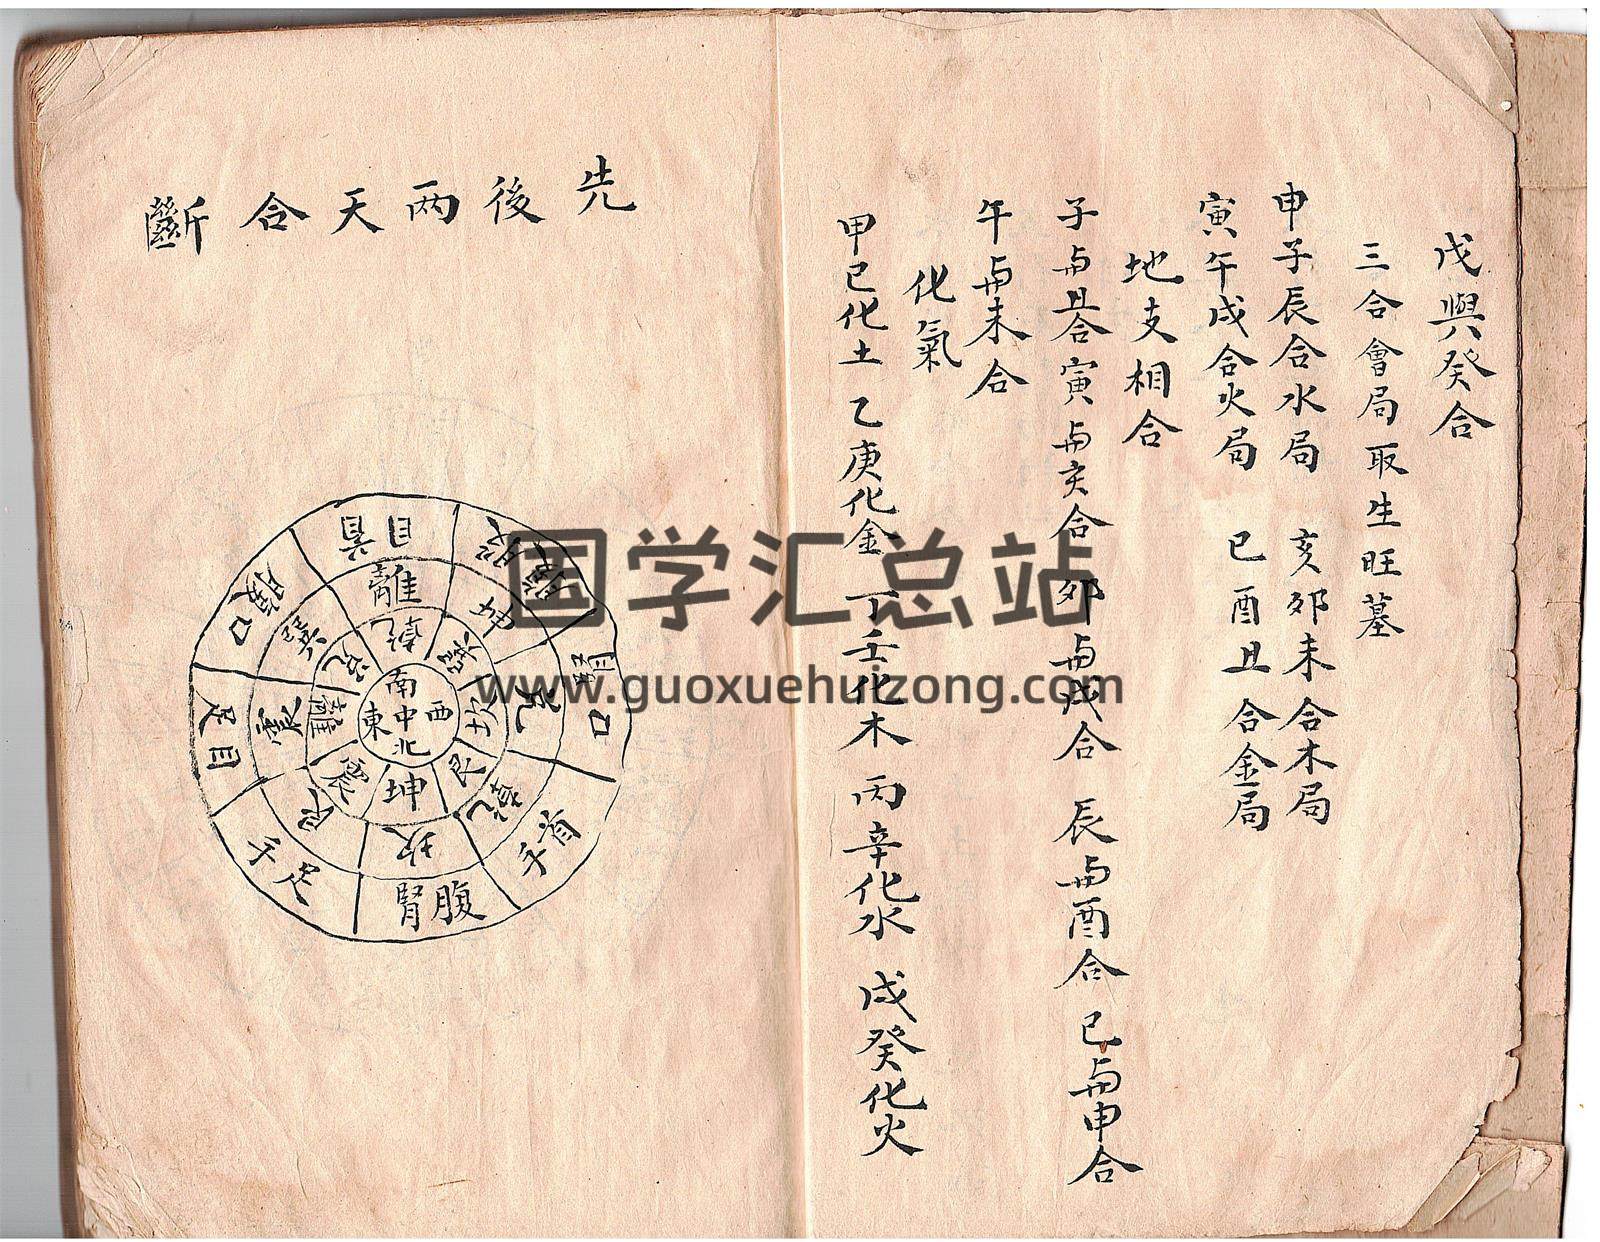 戊與癸合
三合會局取生旺墓
申子辰合水局　亥卯未合木局
寅午戌合火局　巳酉丑合金局
地支相合
子与丑合寅与亥合　卯与戌合　辰与酉合巳与申合
午与未合
化氣
甲已化土　乙庚化金　丁壬化木　丙辛化水　戊癸化火
先後兩天合斷
南
東中西
北
乾
坎
艮
坤
震
離
兌
離
坤
兌
乾
坎
艮
震
巽
目首
口
首手
腎腹
手足
足目
口
国学汇总站
www.guoxuehuizong.com